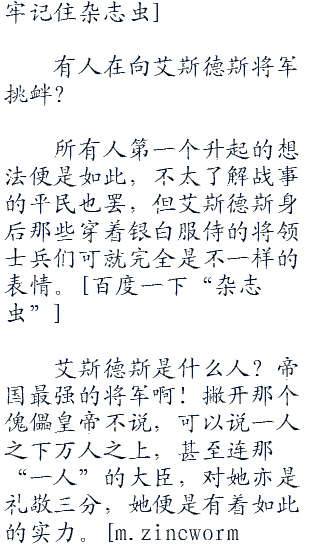 牢记住杂志虫]
有人在向艾斯德斯将军
挑衅?
所有人第一个升起的想
法便是如此，不太了解战事
的平民也罢，但艾斯德斯身
后那些穿着银白服侍的将领
士兵们可就完全是不一样的
表情。[百度一下“杂志
虫”]
艾斯德斯是什么人？帝
国最强的将军啊！撇开那个
傀儡皇帝不说，可以说一人
之下万人之上，甚至连那
“一人”的大臣，对她亦是
礼敬三分，她便是有着如此
的实力。[m.zincworm